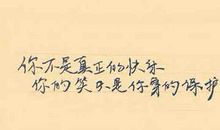 你不是真正的快乐
你的笑只是你穿的保护